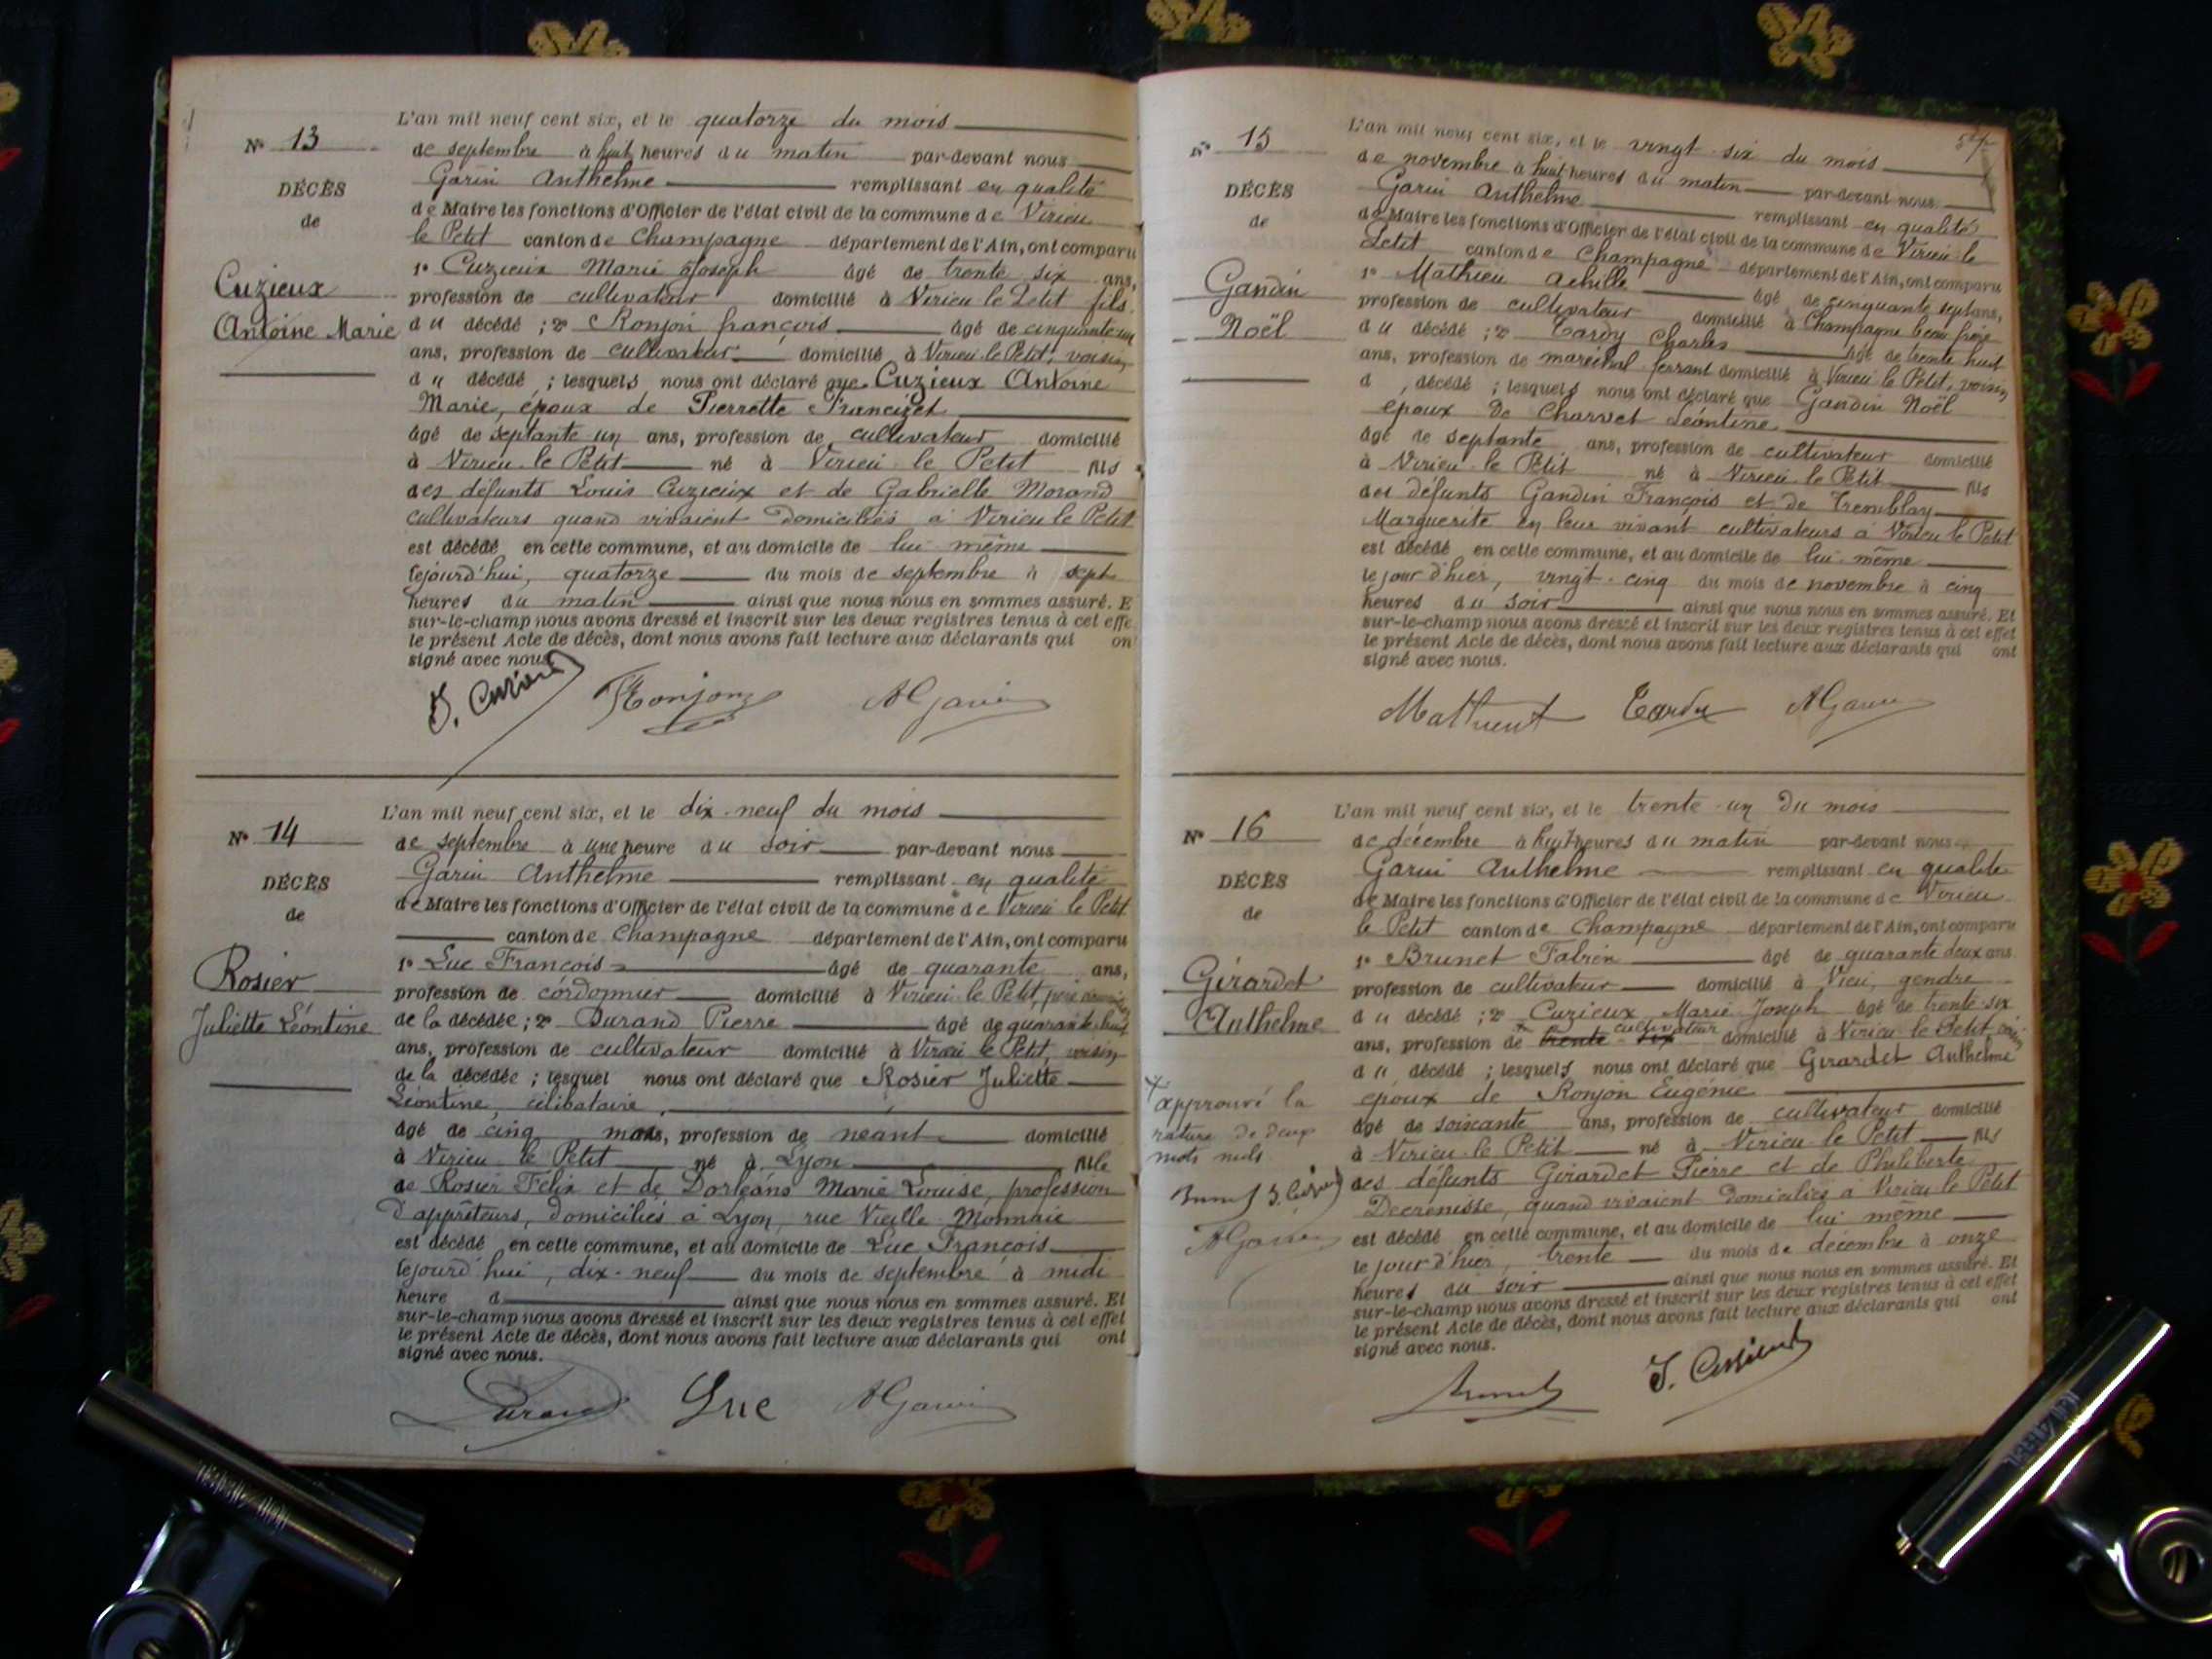 N° 13
DÉCÈS
de
Cuzieux
Antoine Marie
L'an mil neuf cent six, et le quatorze du mois
de septembre à huit heures du matin par-devant nous
Garin Anthelme remplissant en qualité
de Maire les fonctions d'Officier de l'état civil de la commune de Virieu
le Petit canton de Champagne département de l'Ain, ont comparu
1° Cuzieux Marie Joseph âgé de trente six ans,
profession de cultivateur domicilié à Virieu le Petit fils
du décédé ; 2° Ronjon françois âgé de cinquante un
ans, profession de cultivateur domicilié à Virieu le Petit, voisin
du décédé ; lesquels nous ont déclaré que Cuzieux Antoine
Marie, époux de Pierrette Francizet
âgé de septante un ans, profession de cultivateur domicilié
à Virieu le Petit né à Virieu le Petit fils
des défunts Louis Cuzieux et de Gabrielle Morand
cultivateurs quand vivaient domiciliés à Virieu le Petit
est décédé en cette commune, et au domicile de lui même
lejourd'hui, quatorze du mois de septembre à sept
heures du matin ainsi que nous nous en sommes assuré. E
sur-le-champ nous avons dressé et inscrit sur les deux registres tenus à cet effe
le présent Acte de décès, dont nous avons fait lecture aux déclarants qui on
signé avec nous.
J. Cuzieux Ronjon AGarin
N° 14
DÉCÈS
de
Rosier
Juliette Léontine
L'an mil neuf cent six, et le dix-neuf du mois
de septembre à une heure du soir par-devant nous
Garin Anthelme remplissant en qualité
de Maire les fonctions d'Officier de l'état civil de la commune de Virieu le Petit
canton de Champagne département de l'Ain, ont comparu
1° Luc François âgé de quarante ans,
profession de cordonnier domicilié à Virieu le Petit, père
de la décédée ; 2° Durand Pierre âgé de quarante huit
ans, profession de cultivateur domicilié à Virieu le Petit, voisin
de la décédée ; lesquel nous ont déclaré que Rosier Juliette
Léontine, célibataire,
âgé de cinq mois, profession de néant domicilié
à Virieu le Petit né à Lyon fille
de Rosier Félix et de Dorléans Marie Louise, profession
d'apprêteurs, domiciliés à Lyon, rue Vieille Monnaie
est décédé en cette commune, et au domicile de Luc François
lejourd'hui, dix-neuf du mois de septembre à midi
heure d ainsi que nous nous en sommes assuré. Et
sur-le-champ nous avons dressé et inscrit sur les deux registres tenus à cet effet
le présent Acte de décès, dont nous avons fait lecture aux déclarants qui ont
signé avec nous.
Durand Luc AGarin
N° 15
DÉCÈS
de
Gandin
Noël
L'an mil neuf cent six, et le vingt-six du mois
de novembre à huit heures du matin par-devant nous
Garin Anthelme remplissant en qualité
de Maire les fonctions d'Officier de l'état civil de la commune de Virieu le
Petit canton de Champagne département de l'Ain, ont comparu
1° Mathieu Achille âgé de cinquante sept ans,
profession de cultivateur domicilié à Champagne beau frère
du décédé ; 2° Tardy Charles âgé de trente huit
ans, profession de maréchal ferrant domicilié à Virieu le Petit, voisin
d décédé ; lesquels nous ont déclaré que Gandin Noël
époux de Charvet Léontine
âgé de septante ans, profession de cultivateur domicilié
à Virieu le Petit né à Virieu le Petit fils
des défunts Gandin François et de Tremblay
Marguerite en leur vivant cultivateurs à Virieu le Petit
est décédé en cette commune, et au domicile de lui même
le jour d'hier, vingt-cinq du mois de novembre à cinq
heures du soir ainsi que nous nous en sommes assuré. Et
sur-le-champ nous avons dressé et inscrit sur les deux registres tenus à cet effet
le présent Acte de décès, dont nous avons fait lecture aux déclarants qui ont
signé avec nous.
Mathieu Tardy AGarin
N° 16
DÉCÈS
de
Girardet
Anthelme
approuvé la
rature de deux
mots nuls
Brunet J. Cuzieux
AGarin
L'an mil neuf cent six, et le trente-un du mois
de décembre à huit heures du matin par-devant nous
Garin Anthelme remplissant en qualité
de Maire les fonctions d'Officier de l'état civil de la commune de Virieu
le Petit canton de Champagne département de l'Ain, ont comparu
1° Brunet Fabien âgé de quarante deux ans
profession de cultivateur domicilié à Vieu, gendre
du décédé ; 2° Cuzieux Marie Joseph âgé de trente-six
ans, profession de trente six cultivateur domicilié à Virieu le Petit, voisin
du décédé ; lesquels nous ont déclaré que Girardet Anthelme
époux de Ronjon Eugénie
âgé de soixante ans, profession de cultivateur domicilié
à Virieu le Petit né à Virieu le Petit fils
des défunts Girardet Pierre et de Philiberte
Decrenisse, quand vivaient domiciliés à Virieu le Petit
est décédé en cette commune, et au domicile de lui même
le jour d'hier, trente du mois de décembre à onze
heures du soir ainsi que nous nous en sommes assuré. Et
sur-le-champ nous avons dressé et inscrit sur les deux registres tenus à cet effet
le présent Acte de décès, dont nous avons fait lecture aux déclarants qui ont
signé avec nous.
Brunet J. Cuzieux